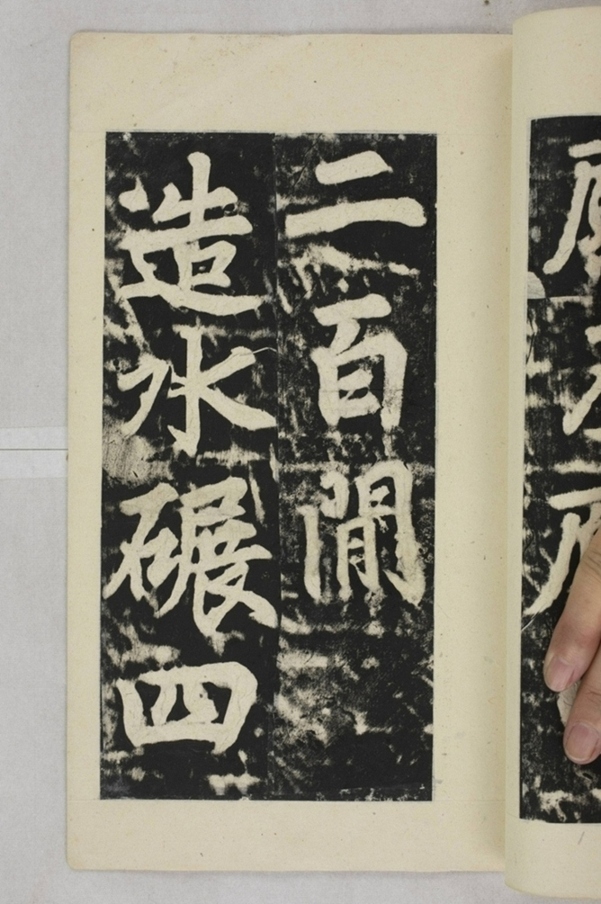 二百閒
造水碾四